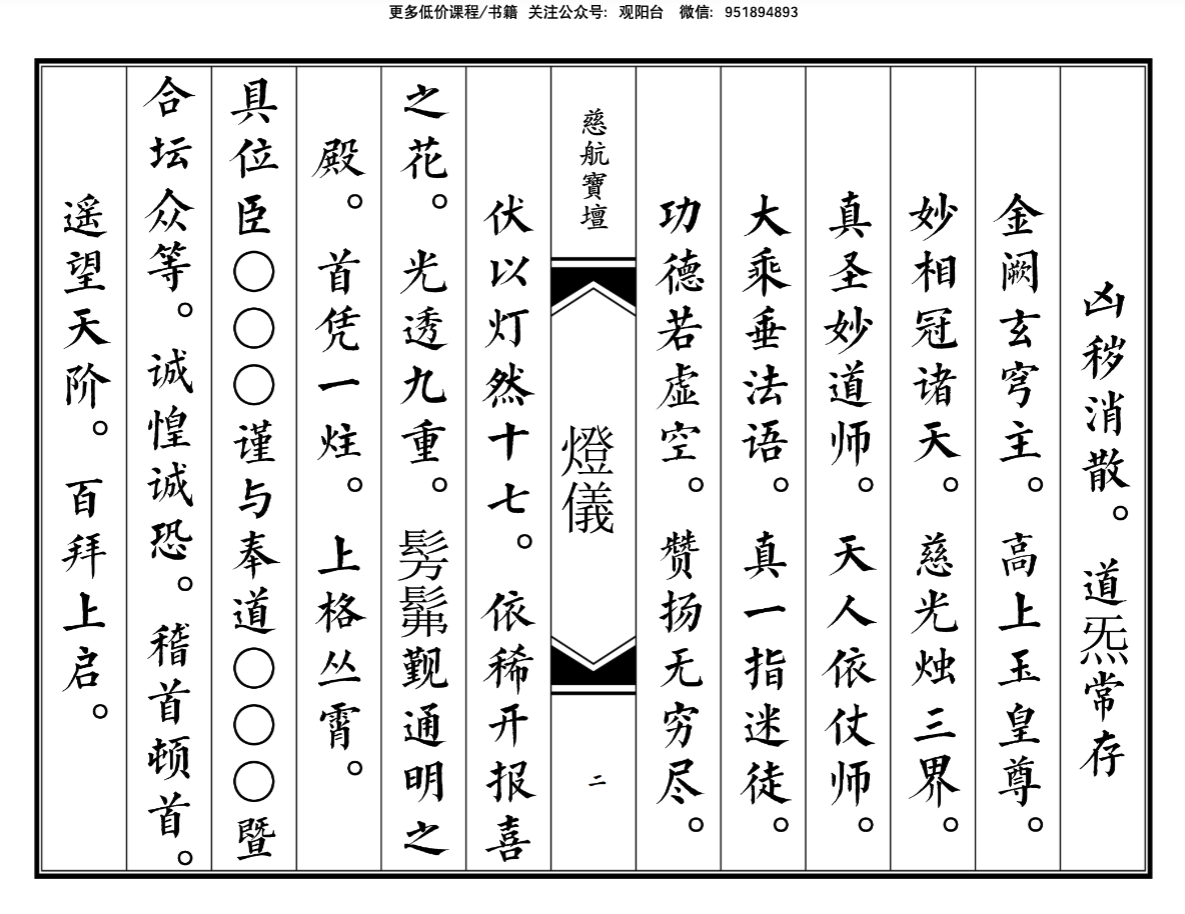 更多低价课程/书籍 关注公众号: 观阳台 微信: 951894893
凶秽消散。道炁常存
金阙玄穹主。高上玉皇尊。
妙相冠诸天。慈光烛三界。
真圣妙道师。天人依仗师。
大乘垂法语。真一指迷徒。
功德若虚空。赞扬无穷尽。
慈航寶壇
燈儀
二
伏以灯然十七。依稀开报喜
之花。光透九重。髣髴觐通明之
殿。首凭一炷。上格丛霄。
具位臣〇〇〇谨与奉道〇〇〇暨
合坛众等。诚惶诚恐。稽首顿首。
遥望天阶。百拜上启。